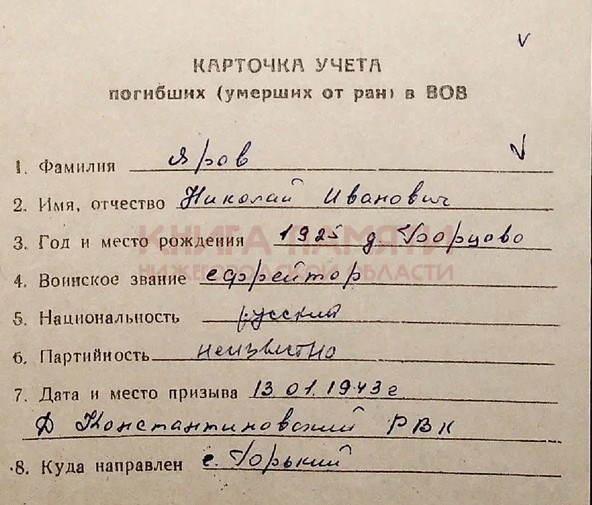 КАРТОЧКА УЧЕТА
погибших (умерших от ран) в ВОВ
1. Фамилия Яров
2. Имя, отчество Николай Иванович
3. Год и место рождения 1925 д.
КНИГА ПАМЯТИ
НИЖЕГОРОДСКОЙ ОБЛАСТИ
4. Воинское звание ефрейтор
5. Национальность русский
6. Партийность неизвестно
7. Дата и место призыва 13.01.1943г
Д Константиновский РВК
8. Куда направлен г. Горький